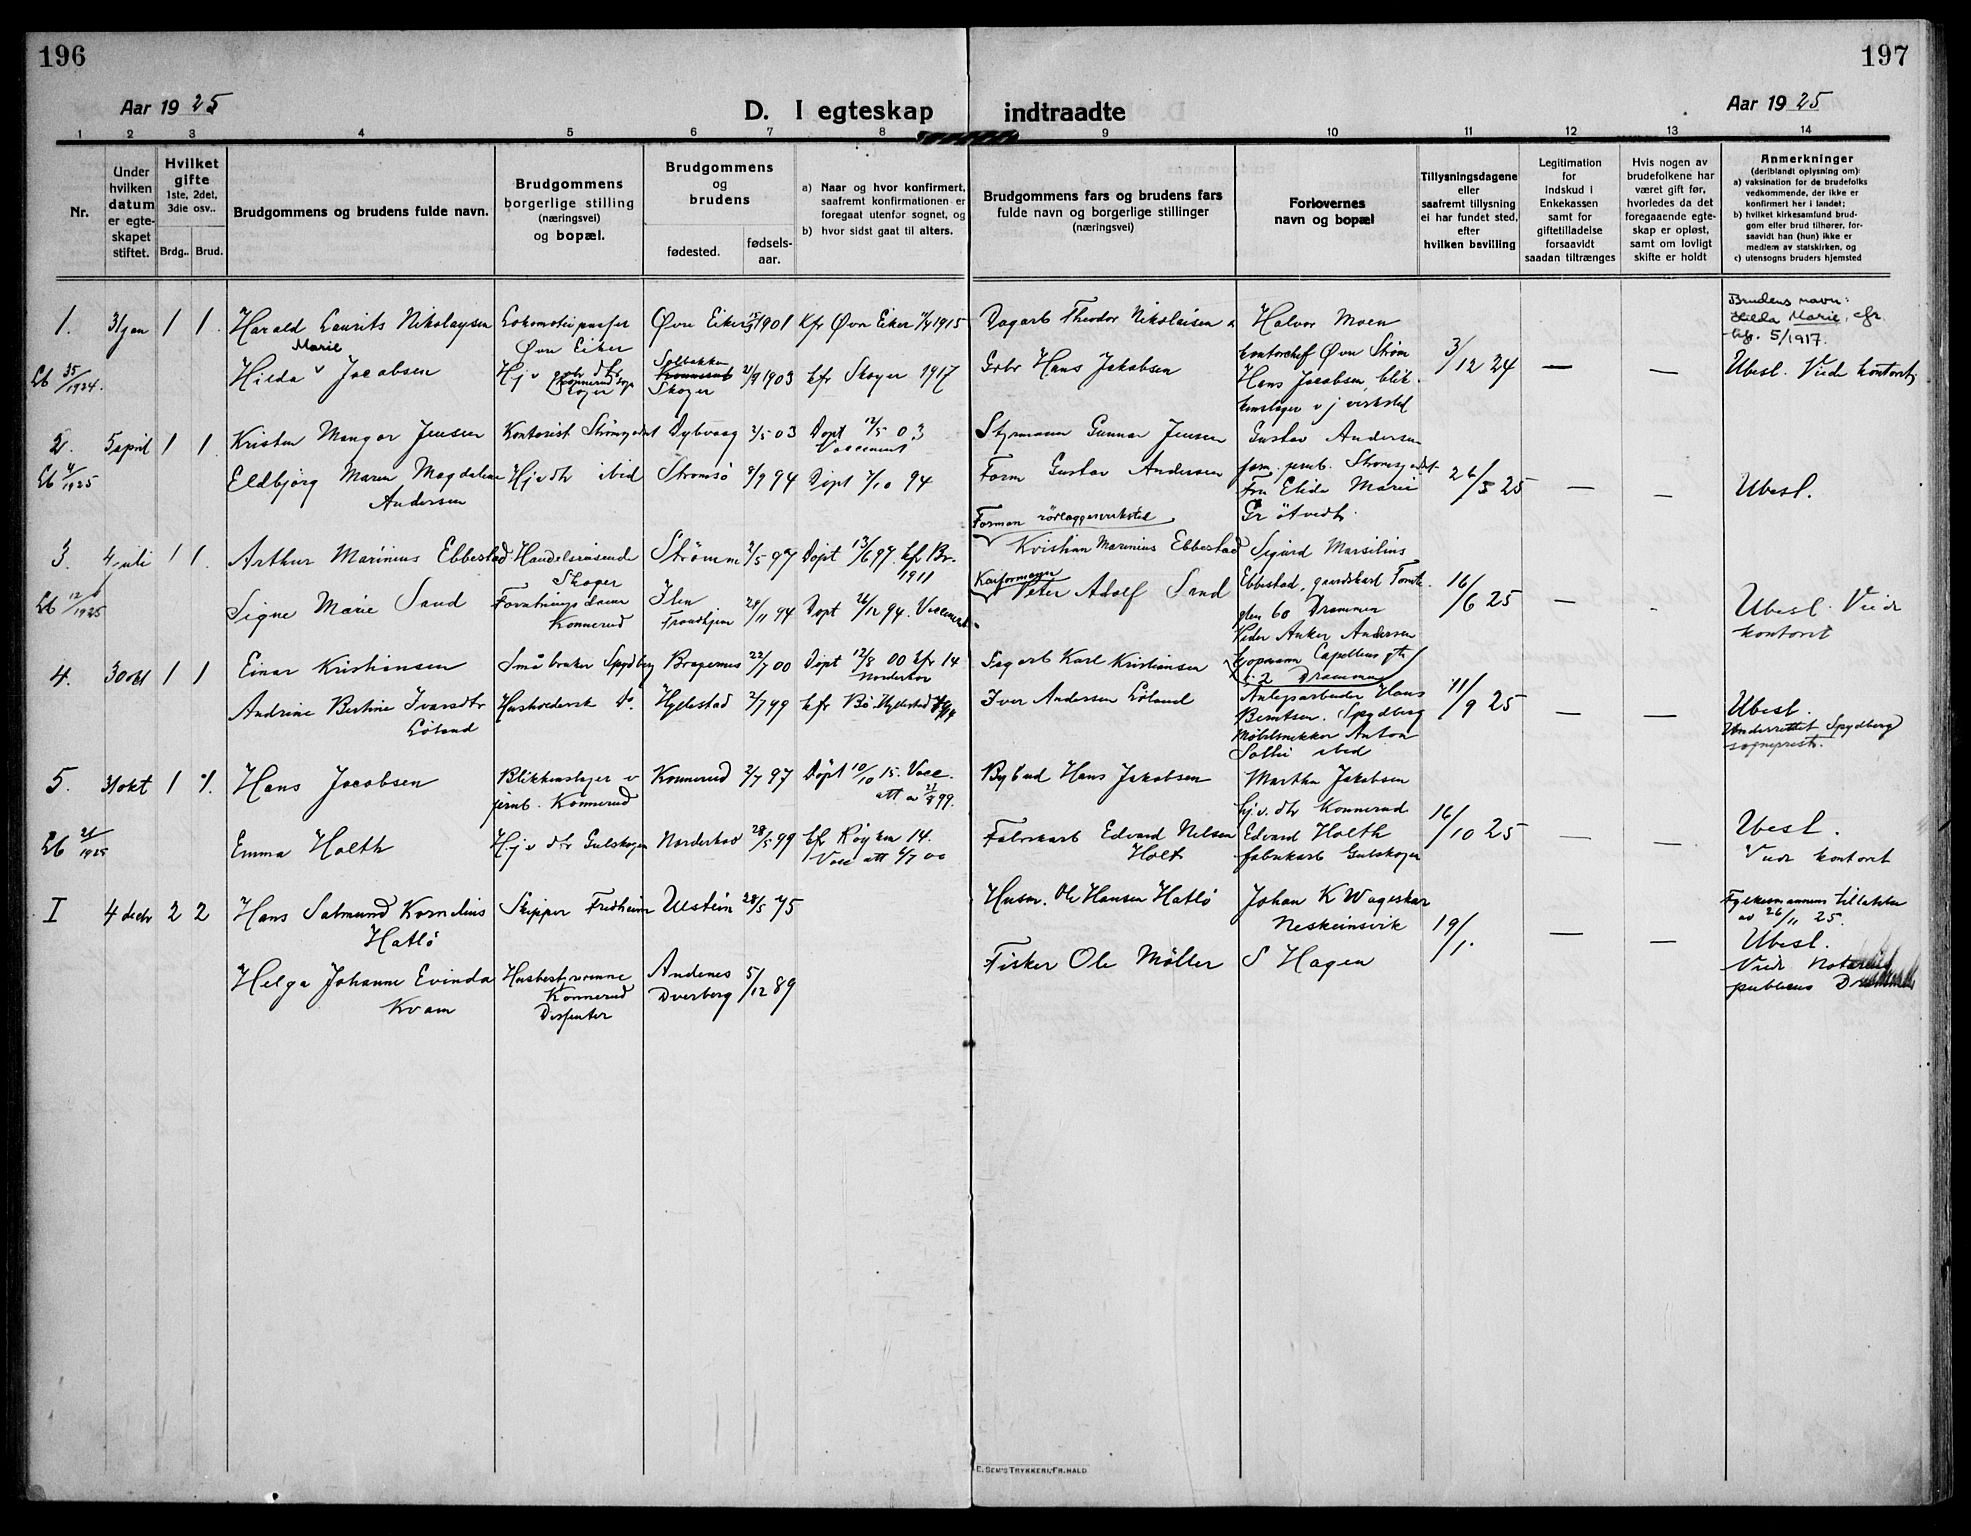 196
197
Aar 1925
D. I egteskap indtraadte
Aar 1925
1 2 3 4 5 6 7 8 9 10 11 12 13 14
Nr.
Under
hvilken
datum
er egte-
skapet
stiftet.
Hvilket
gifte
1ste, 2det,
3die osv..
Brdg.. Brud.
Brudgommens og brudens fulde navn.
Brudgommens
borgerlige stilling
(næringsvei)
og bopæl.
Brudgommens
og
brudens
fødested.
fødsels-
aar.
a) Naar og hvor konfirmert,
saafremt konfirmationen er
foregaat utenfor sognet, og
b) hvor sidst gaat til alters.
Brudgommens fars og brudens fars
fulde navn og borgerlige stillinger
(næringsvei)
Forlovernes
navn og bopæl
Tillysningsdagene
eller
saafremt tillysning
ei har fundet sted,
efter
hvilken bevilling
Legitimation
for
indskud i
Enkekassen
samt for
giftetilladelse
forsaavidt
saadan tiltrænges
Hvis nogen av
brudefolkene har
været gift før,
hvorledes da det
foregaaende egte-
skap er opløst,
samt om lovligt
skifte er holdt
Anmerkninger
(deriblandt oplysning om):
a) vaksination for de brudefolks
vedkommende, der ikke er
konfirmert her i landet;
b) hvilket kirkesamfund brud-
gom eller brud tilhører, for-
saavidt han (hun) ikke er
medlem av statskirken, og
c) utensogns bruders hjemsted
1. 31 jan 1 1.
Harald Laurits Nikolaysen
Lokomotivpusser
Øvre Eiker
Øvre Eiker 1901
Kfr Øvre Eiker 1915
Dagarb Theodor Nikolaisen
Halvor Moen
kontorchef Øvre Strøm
Lb 35/1924.
Marie
Hilda v Jacobsen
Hj v
Konnerud
Skoger
Solbakken
Skoger
1903
kfr Skoger 1917
Grbr Hans Jakobsen
Hans Jacobsen, blik-
kenslager v j verksted
3/12 24
—
—
Brudens navn:
Hilda Marie, cfr.
5/1917.
Ubesl. Viede kontoret
2. 5 april 1 1.
Kristen Mangor Jensen
Kontorist Strømsgodset
Dybvaag 2/5 03
Døpt 12/5 03
Vaccinert
Styrmann Gunnar Jensen
Gustav Andersen
form. jernb. Strømsgodset
Lb 4/1925
Eldbjørg Maren Magdalene
Andersen
Hj v dtr ibid
Strømsø 8/9 94
Døpt 7/10 94
Form Gustav Andersen
Fru Elida Marie
26/3 25
—
—
Ubesl.
3. 4 juli 1 1.
Arthur Marinius Ebbestad
Handelsreisende
Skoger
Strømm 2/5 97
Døpt 13/6 97. kfr Br.
1911
Forman rørleggerverksted
Kristian Marinius Ebbestad
Sigurd Marsilius
Ebbestad, gaardskarl Tomte-
gtn 60 Drammen
Lb 12/1925
Signe Marie Sand
Forretnings dame
Konnerud
Ilen
Trondhjem
28/11 94
Døpt 26/12 94. Vaccinert
Peter Adolf Sand
Peder Anker Andersen
kjøpmann Capellens gt
i 2 Drammen
16/6 25
—
—
Ubesl. Viede
kontoret
4. 30 okt 1 1
Einar Kristiansen
Småbruker Spydberg
Bragernes 22/7 00
Døpt 12/8 00 kfr 14
Norderhov
Fagarb Karl Kristiansen
Anlegsarbeider Hans
Berntsen. Spydberg
Andrine Bertine Ivarsdtr
Løland
Husholdersk do.
Hyllestad 2/7 99
kfr Bø Hyllestad 14
Iver Andersen Løland
Møbelsnekker Anton
Solli ibid
11/9 25
—
—
Ubesl.
Underrettet Spydberg
sogneprest.
5. 31 okt 1 1.
Hans Jacobsen
Blikkenslager v
jernb. Konnerud
Konnerud 2/7 97
Døpt 10/10 15. Vacc.
att a 21/8 99.
Bybud Hans Jakobsen
Martha Jakobsen
hj.v. dtr Konnerud
Lb 21/1925
Emma Holth
Hj v dtr Gulskogen
Norderhov 28/5 99
kfr Røyken 14.
Vacc att 6/7 00
Fabrikarb Edvard Nilsen
Holt
Edvard Holth
fabrikarb Gulskogen
16/10 25
—
—
Ubesl.
Viede kontoret
I 4 decbr 2 2
Hans Salmund Kornelius
Hatlø
Skipper Fredheim
Ulstein 28/5 75
Husm. Ole Hansen Hatlø
Johan K Wageskar
Neskeinsvik
Helga Johanne Evinda
Kvam
Husbestyrerinne
Konnerud
Dissenter
Andenes
Dverberg
5/12 89
Fisker Ole Møller
S Hagen
19/1.
—
—
Fylkesmannens tillatelse
av 26/11 25.
Ubesl.
Viede Notarius
publicus Drammen
E. SEM'S TRYKKERI, FR.HALD